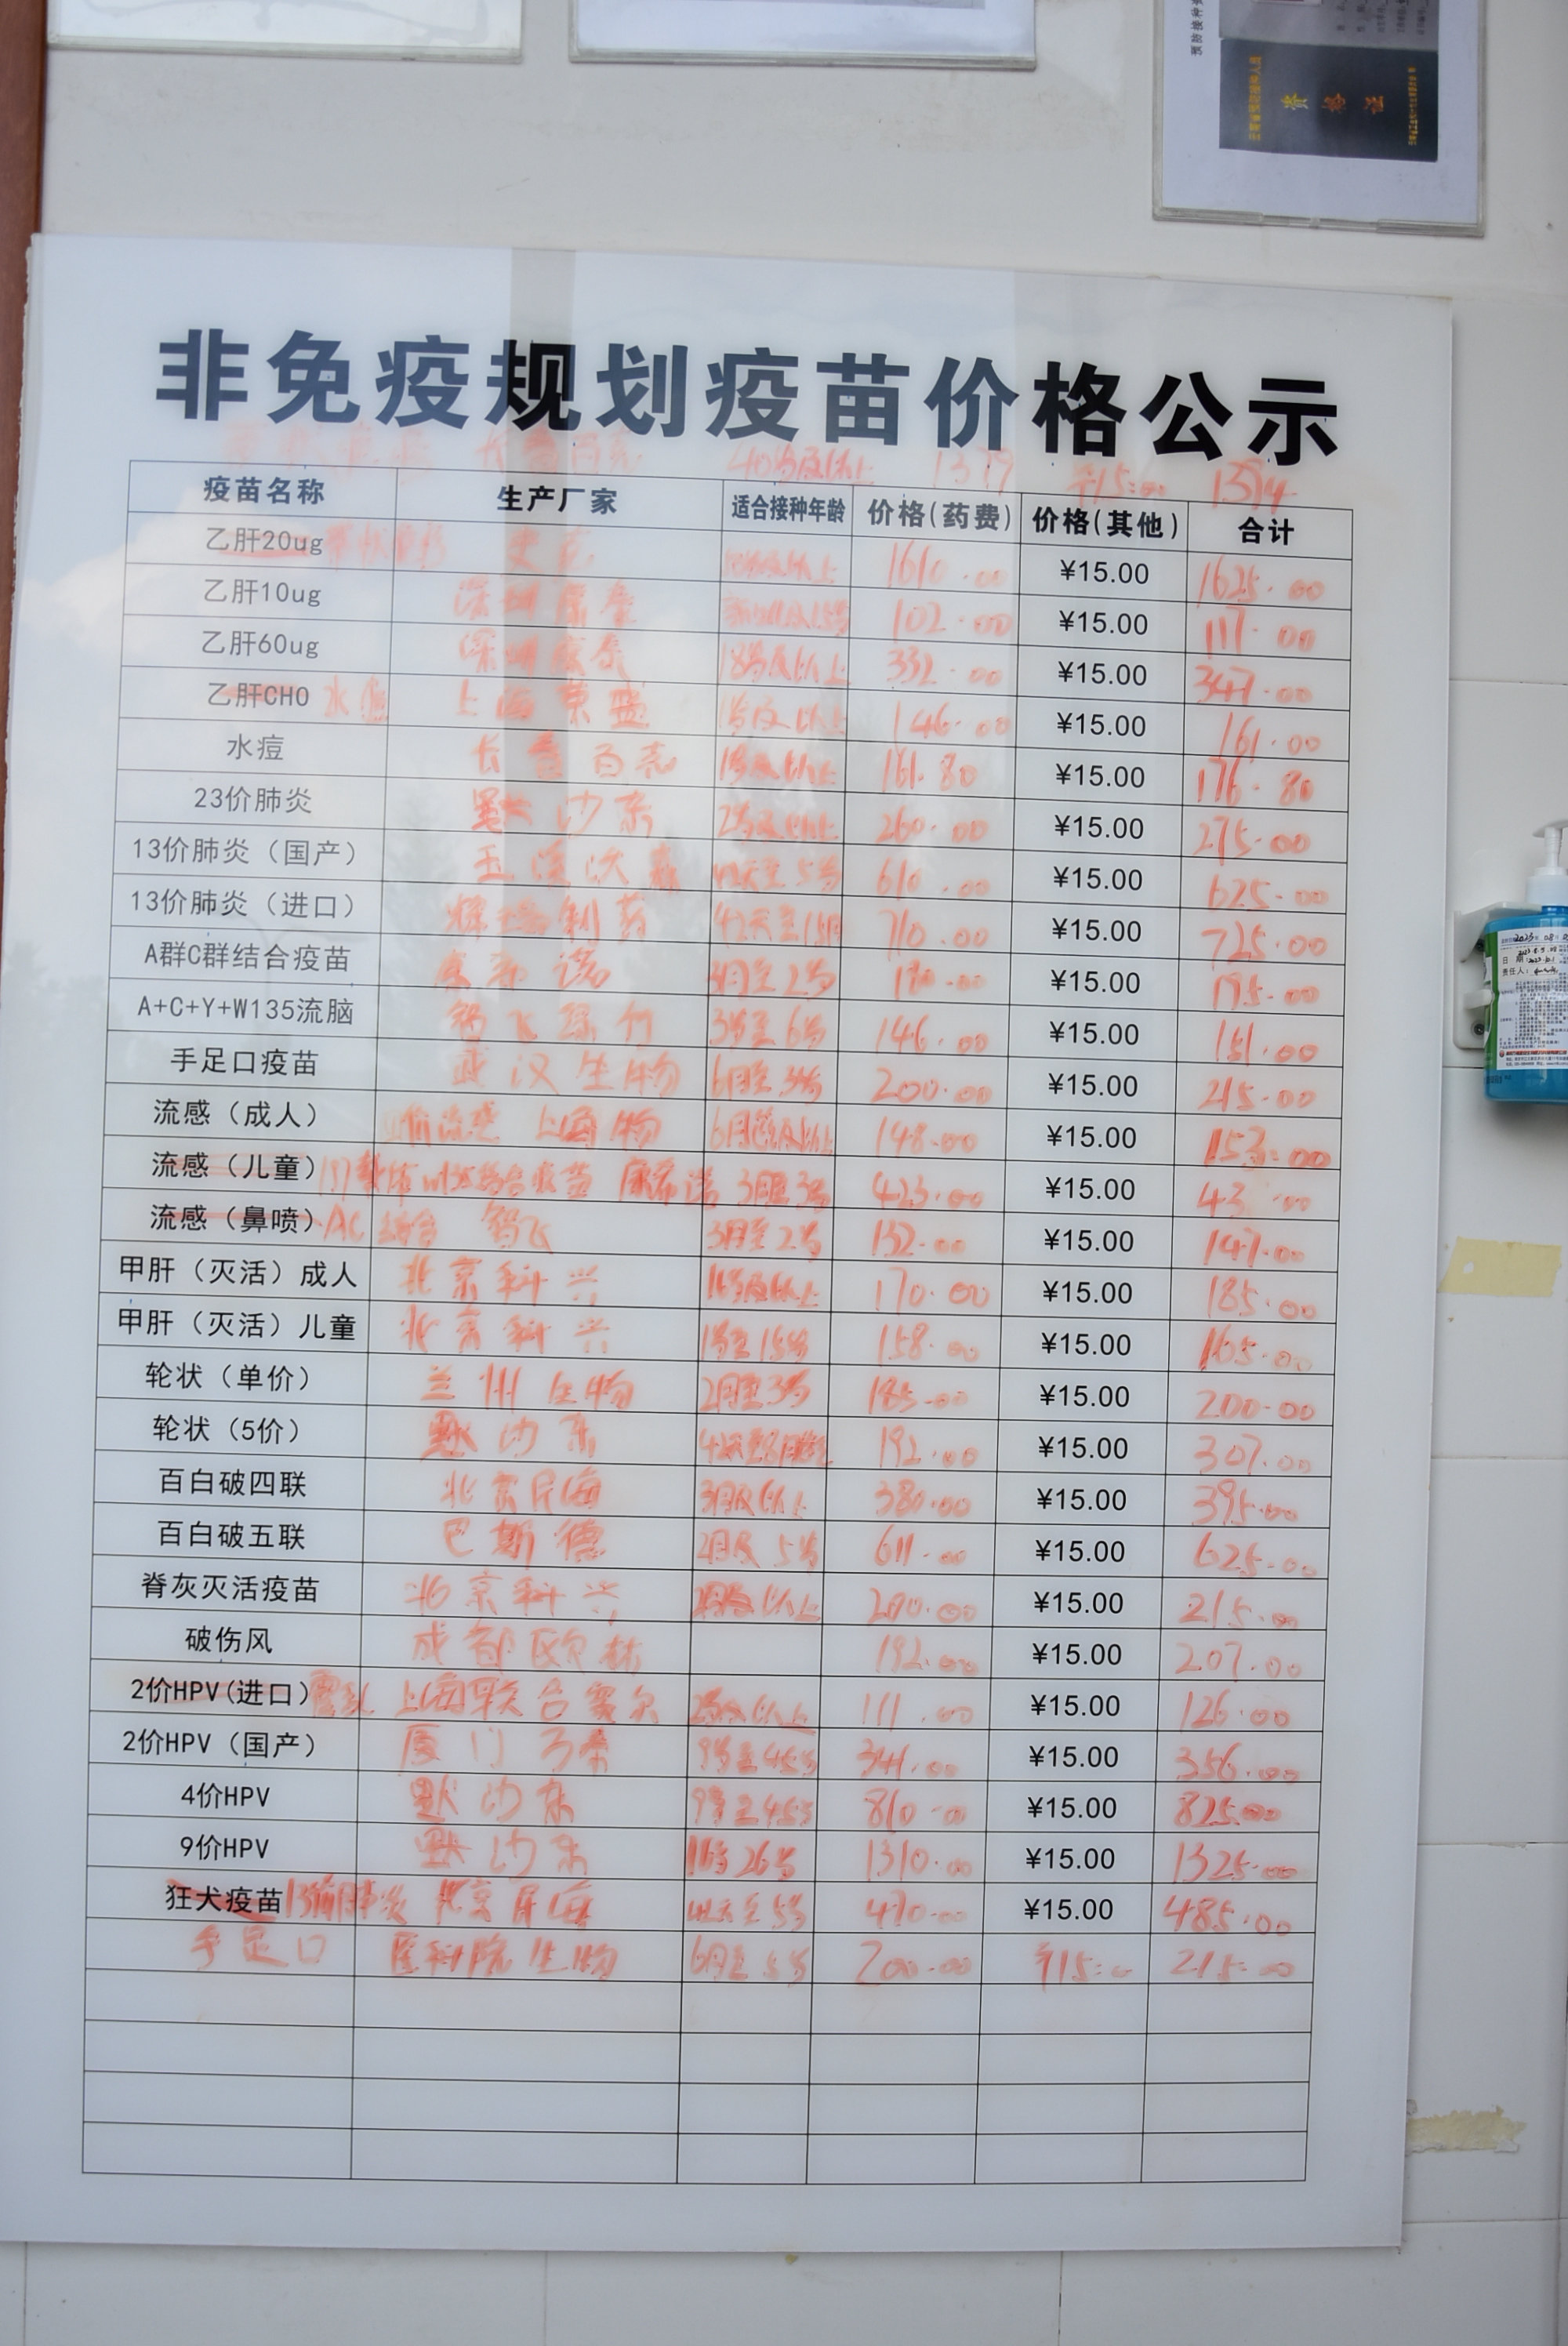 非免疫规划疫苗价格公示
长春百克 40岁及以上 1379 ¥15.00 1394
疫苗名称 生产厂家 适合接种年龄 价格(药费) 价格(其他) 合计
乙肝20ug 带状疱疹 1610.00 ¥15.00 1625.00
乙肝10ug 深圳康泰 102.00 ¥15.00 117.00
乙肝60ug 深圳康泰 18岁及以上 332.00 ¥15.00 347.00
乙肝CHO 水痘 上海荣盛 1岁及以上 146.00 ¥15.00 161.00
水痘 长春百克 1岁及以上 161.80 ¥15.00 176.80
23价肺炎 默沙东 2岁及以上 260.00 ¥15.00 275.00
13价肺炎（国产） 玉溪沃森 42天至5岁 610.00 ¥15.00 625.00
13价肺炎（进口） 辉瑞制药 42天至15月 710.00 ¥15.00 725.00
A群C群结合疫苗 康希诺 3月至2岁 180.00 ¥15.00 195.00
A+C+Y+W135流脑 智飞绿竹 3岁至6岁 146.00 ¥15.00 161.00
手足口疫苗 武汉生物 6月至3岁 200.00 ¥15.00 215.00
流感（成人） 四价流感 上海生物 6月龄及以上 148.00 ¥15.00 153.00
流感（儿童） 结合疫苗 康希诺 3月至3岁 423.00 ¥15.00
流感（鼻喷） AC结合 智飞 3月至2岁 132.00 ¥15.00 147.00
甲肝（灭活）成人 北京科兴 16岁及以上 170.00 ¥15.00 185.00
甲肝（灭活）儿童 北京科兴 1岁至15岁 158.00 ¥15.00 165.00
轮状（单价） 兰州生物 2月至3岁 185.00 ¥15.00 200.00
轮状（5价） 默沙东 192.00 ¥15.00 307.00
百白破四联 北京民海 3月及以上 380.00 ¥15.00 395.00
百白破五联 巴斯德 2月及5岁 611.00 ¥15.00 625.00
脊灰灭活疫苗 北京科兴 2月及以上 200.00 ¥15.00 215.00
破伤风 成都欧林 192.00 ¥15.00 207.00
2价HPV(进口) 霍乱 上海联合赛尔 2岁及以上 111.00 ¥15.00 126.00
2价HPV（国产） 厦门万泰 9岁至45岁 341.00 ¥15.00 356.00
4价HPV 默沙东 9岁至45岁 810.00 ¥15.00 825.00
9价HPV 默沙东 16至26岁 1310.00 ¥15.00 1325.00
狂犬疫苗 13价肺炎 北京民海 42天至5岁 470.00 ¥15.00 485.00
手足口 医科院生物 6月至5岁 200.00 ¥15.00 215.00